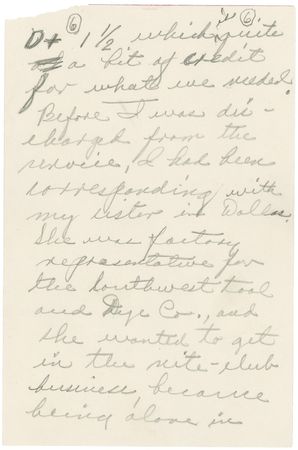 6 is 6
D+ 1 1/2 which quite
a bit of credit
for what we needed.
Before I was dis-
charged from the
service, I had been
corresponding with
my sister in Dallas.
She was factory
representative for
the Southwest Tool
and Dye Co., and
she wanted to get
in the nite-club
business, because
being alone in